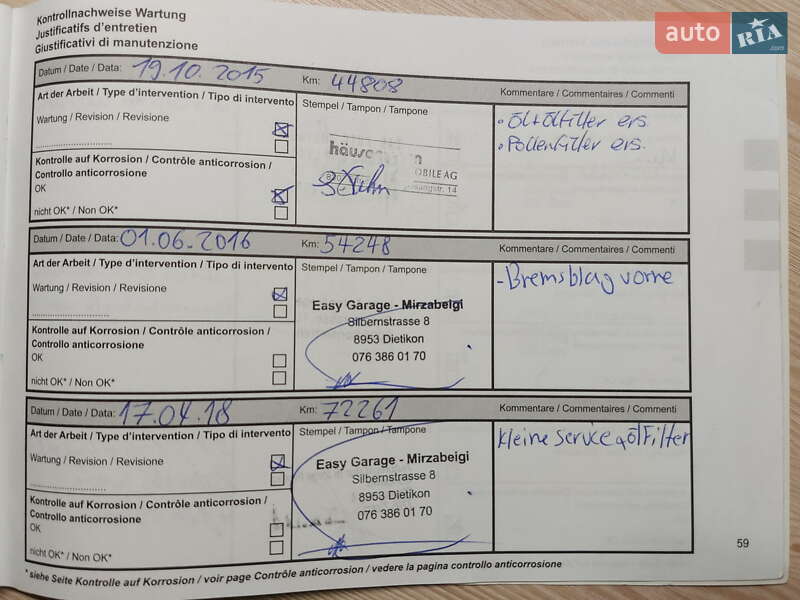 auto RIA.com
Kontrollnachweise Wartung
Justificatifs d'entretien
Giustificativi di manutenzione
Datum / Date / Data: 19.10.2015 Km: 44808 Kommentare / Commentaires / Commenti
Art der Arbeit / Type d'intervention / Tipo di intervento
Stempel / Tampon / Tampone
Wartung / Revision / Revisione
Kontrolle auf Korrosion / Contrôle anticorrosion /
Controllo anticorrosione
OK
nicht OK* / Non OK*
OBILE AG
14
• Öl+Ölfilter ers.
• Pollenfilter ers.
Datum / Date / Data: 01.06.2016 Km: 54248 Kommentare / Commentaires / Commenti
Art der Arbeit / Type d'intervention / Tipo di intervento
Stempel / Tampon / Tampone
Wartung / Revision / Revisione
Kontrolle auf Korrosion / Contrôle anticorrosion /
Controllo anticorrosione
OK
nicht OK* / Non OK*
Easy Garage - Mirzabeigi
Silbernstrasse 8
8953 Dietikon
076 386 01 70
- Bremsblag vorne
Datum / Date / Data: 17.04.18 Km: 72261 Kommentare / Commentaires / Commenti
Art der Arbeit / Type d'intervention / Tipo di intervento
Stempel / Tampon / Tampone
Wartung / Revision / Revisione
Kontrolle auf Korrosion / Contrôle anticorrosion /
Controllo anticorrosione
OK
nicht OK* / Non OK*
Easy Garage - Mirzabeigi
Silbernstrasse 8
8953 Dietikon
076 386 01 70
kleine Service ölFilter
59
*siehe Seite Kontrolle auf Korrosion / voir page Contrôle anticorrosion / vedere la pagina controllo anticorrosione